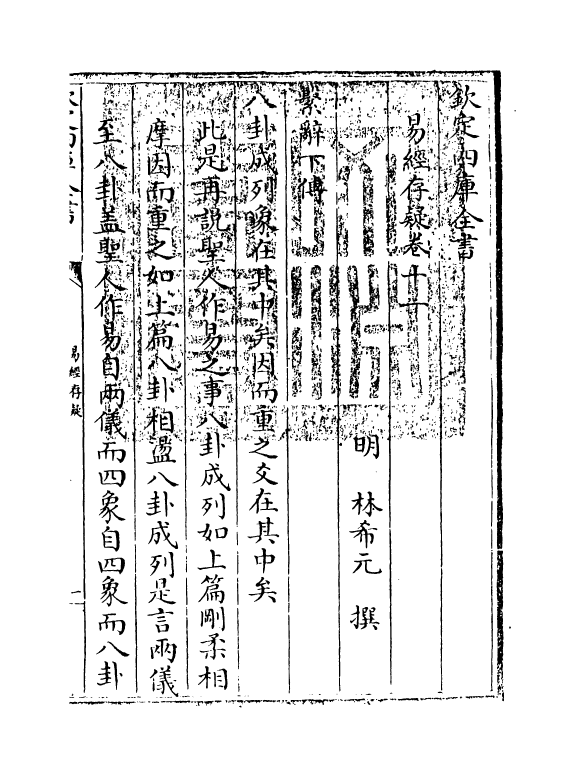 欽定四庫全書
易經存疑卷十一
明　林希元　撰
繫辭下傳
八卦成列象在其中矣因而重之爻在其中矣
此是再說聖人作易之事八卦成列如上篇剛柔相
摩因而重之如上篇八卦相盪八卦成列是言兩儀
至八卦蓋聖人作易自兩儀而四象自四象而八卦
易經存疑